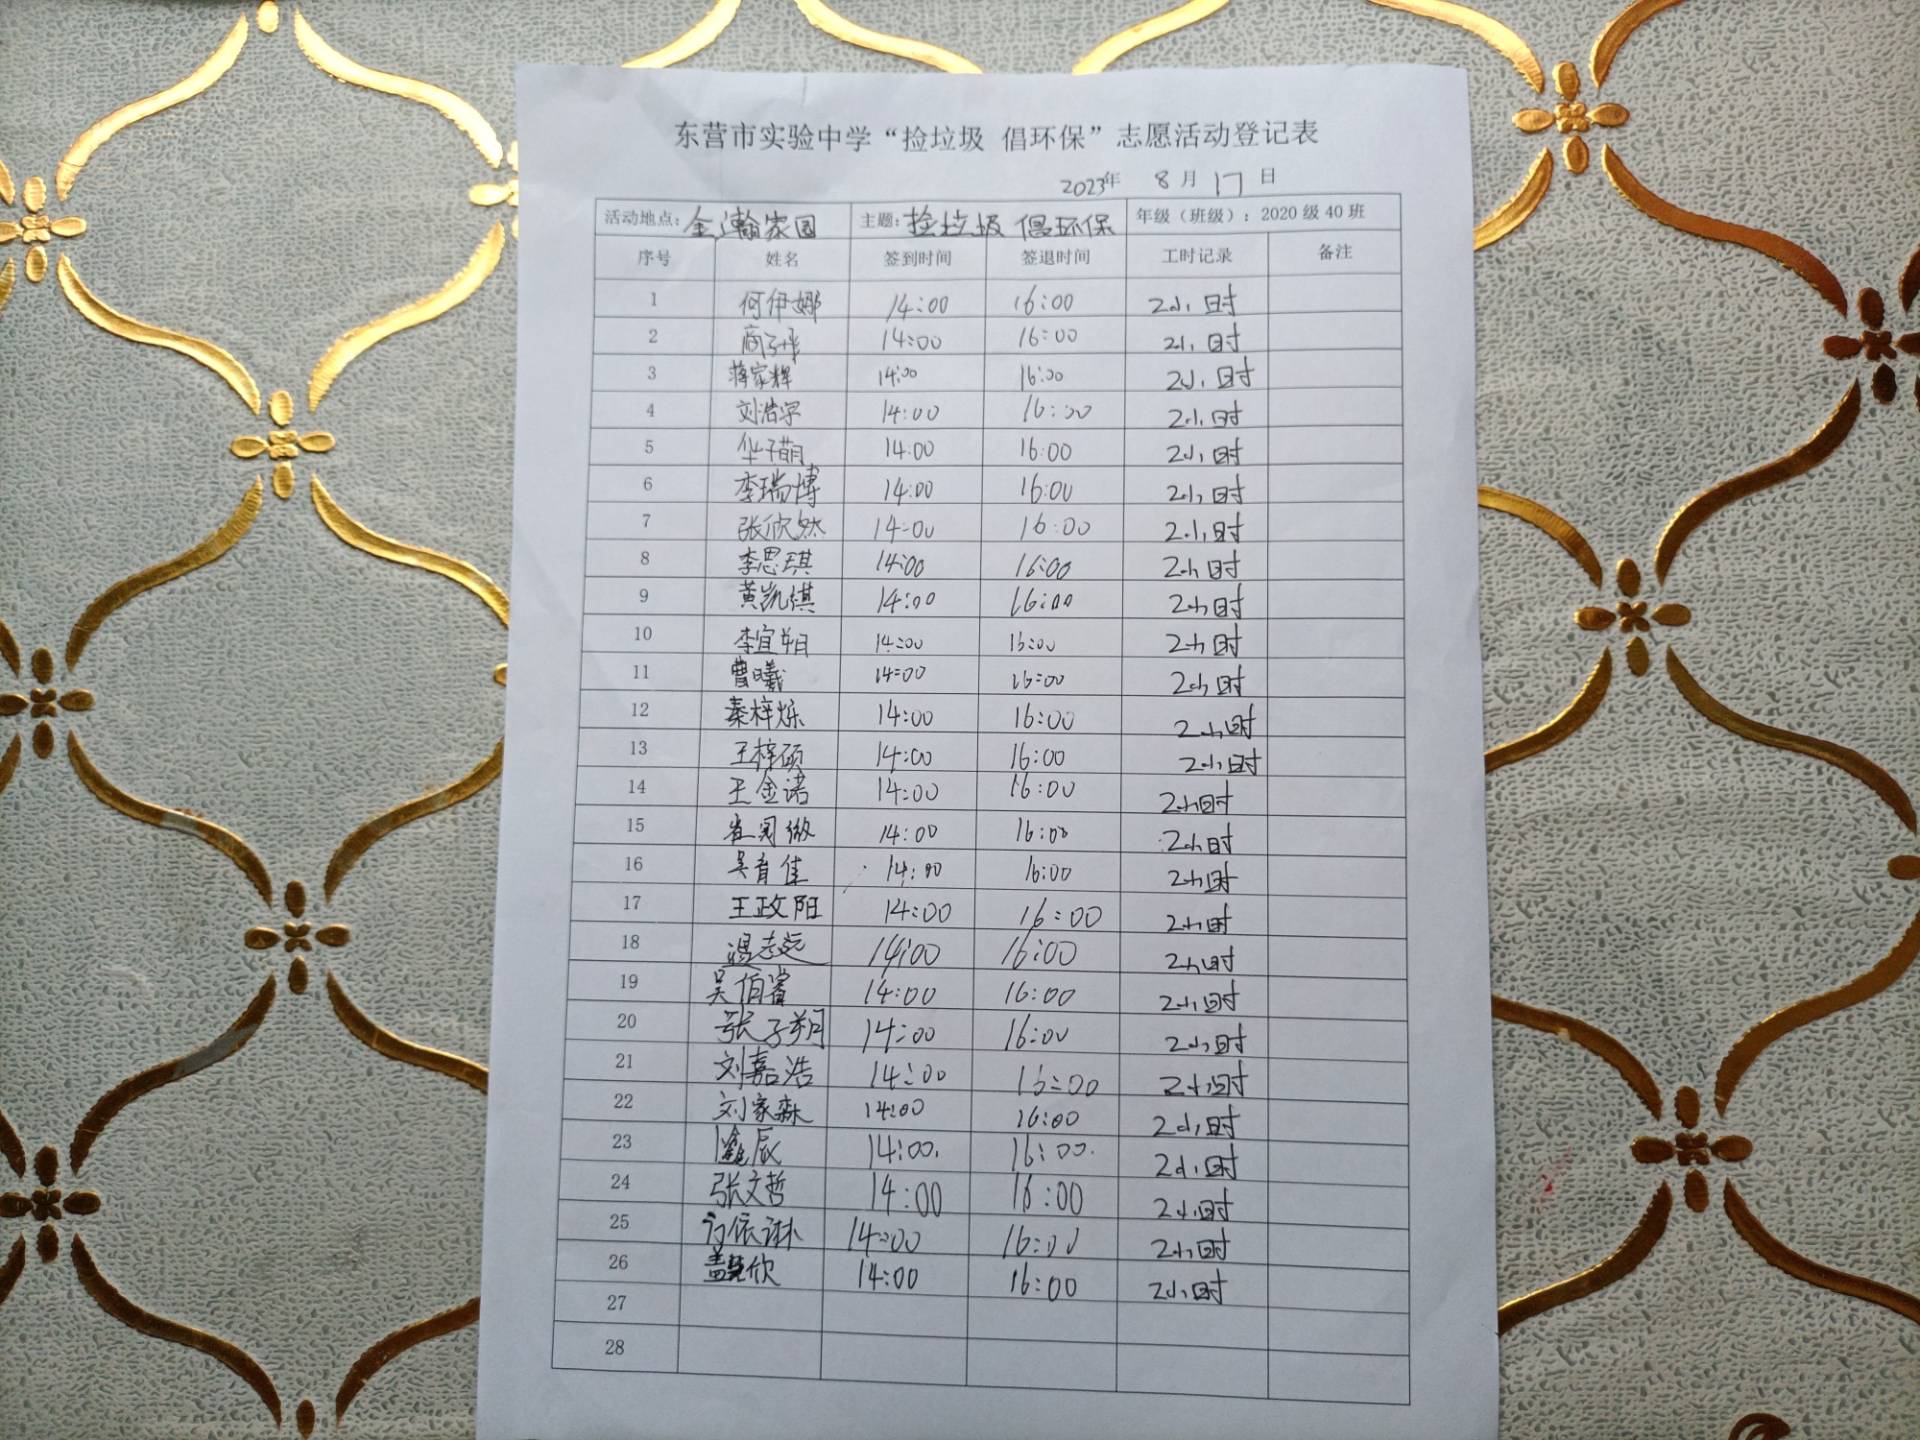 东营市实验中学“捡垃圾 倡环保”志愿活动登记表
2023年 8月17日
活动地点：金瀚家园 主题：捡垃圾 倡环保 年级（班级）：2020级40班
序号 姓名 签到时间 签退时间 工时记录 备注
1 何伊娜 14:00 16:00 2小时
2 商子 14:00 16:00 2小时
3 蒋家辉 14:00 16:00 2小时
4 刘浩宇 14:00 16:00 2小时
5 华子萌 14:00 16:00 2小时
6 李瑞博 14:00 16:00 2小时
7 张欣然 14:00 16:00 2小时
8 李思琪 14:00 16:00 2小时
9 黄凯祺 14:00 16:00 2小时
10 李宜 14:00 16:00 2小时
11 曹曦 14:00 16:00 2小时
12 秦梓烁 14:00 16:00 2小时
13 王梓硕 14:00 16:00 2小时
14 王金诺 14:00 16:00 2小时
15 崔 14:00 16:00 2小时
16 吴育佳 14:00 16:00 2小时
17 王政阳 14:00 16:00 2小时
18 志远 14:00 16:00 2小时
19 吴伯睿 14:00 16:00 2小时
20 张子朔 14:00 16:00 2小时
21 刘嘉浩 14:00 16:00 2小时
22 刘家森 14:00 16:00 2小时
23 辰 14:00. 16:00. 2小时
24 张文哲 14:00 16:00 2小时
25 依琳 14:00 16:00 2小时
26 盖 欣 14:00 16:00 2小时
27
28